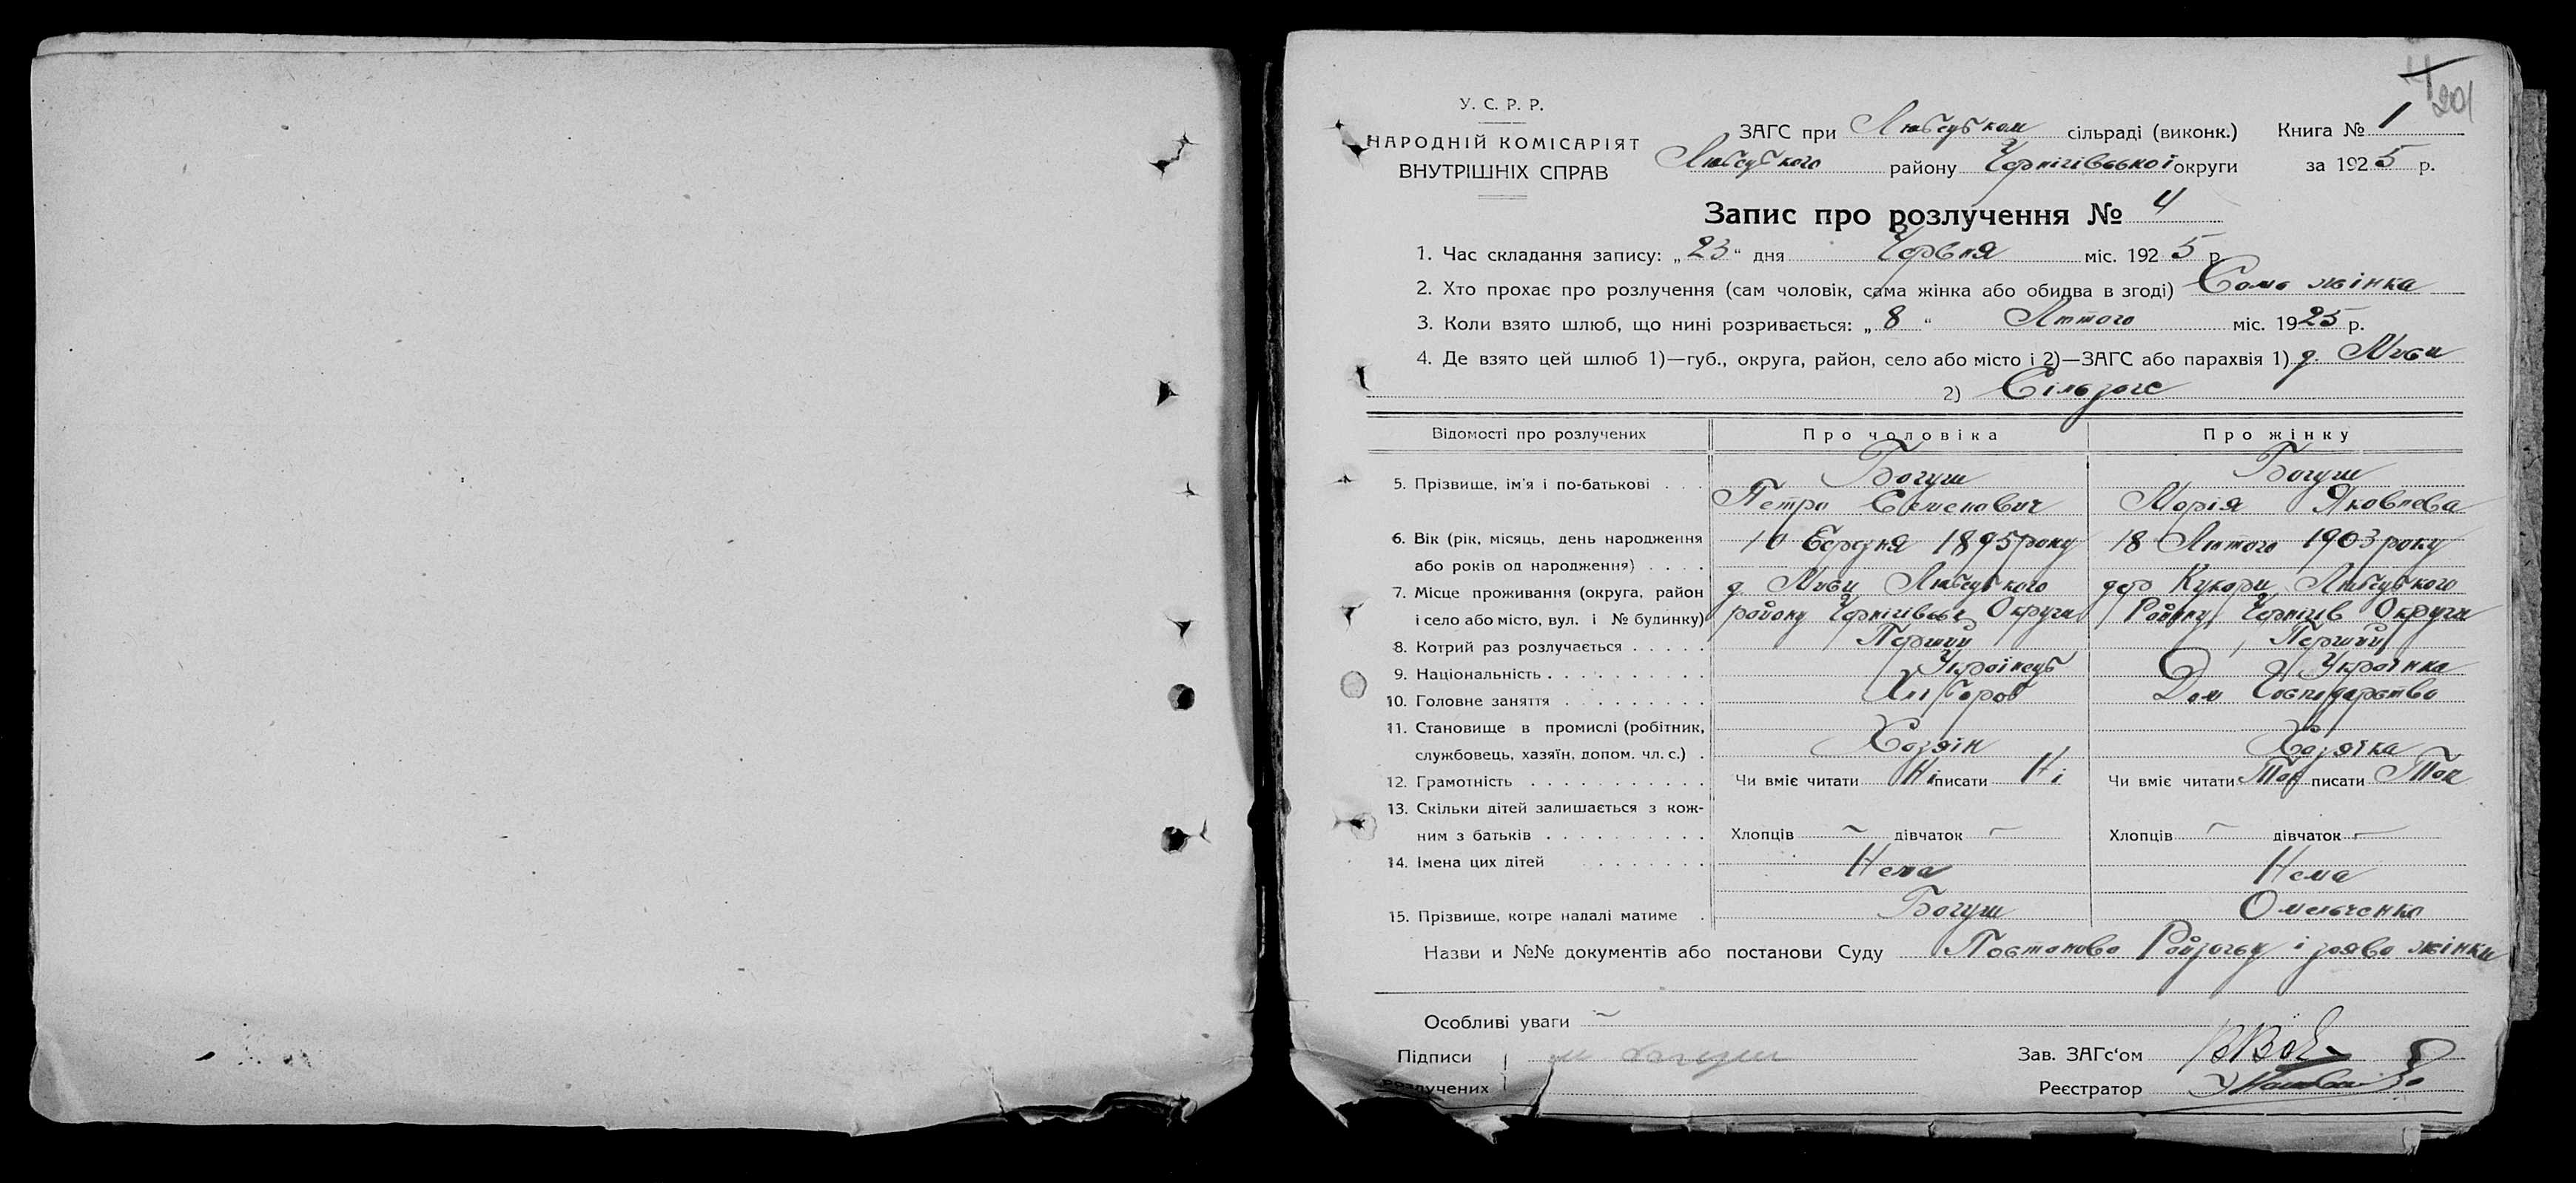 201
У. С. Р. Р.
НАРОДНІЙ КОМІСАРІЯТ
ВНУТРІШНІХ СПРАВ
ЗАГС при Любецьком сільраді (виконк.) Книга № 1
Любецького району Чернігівської округи за 1925 р.
Запис про розлучення № 4
1. Час складання запису: „23“ дня Червня міс. 1925 р.
2. Хто прохає про розлучення (сам чоловік, сама жінка або обидва в згоді) Сама жінка
3. Коли взято шлюб, що нині розривається: „8“ Лютого міс. 1925 р.
4. Де взято цей шлюб 1)—губ., округа, район, село або місто і 2)—ЗАГС або парахвія 1) д.
2) Сільзагс
Відомості про розлучених Про чоловіка Про жінку
5. Прізвище, ім'я і по-батькові . . . Богуш Богуш
Петро Семенович Марія Яковлева
6. Вік (рік, місяць, день народження 10 Березня 1895 року 18 Лютого 1903 року
або років од народження) . . . .
7. Місце проживання (округа, район д. Любецького дер Кукари Любецького
і село або місто, вул. і № будинку) району Округи Району Чернігів Округи
8. Котрий раз розлучається . . . . . Перший Перший
9. Національність . . . . . . . . . . Українець Українка
10. Головне заняття . . . . . . . . . Хлібороб Дом Господарство
11. Становище в промислі (робітник,
службовець, хазяїн, допом. чл. с.) . Хазяін Хазяїка
12. Грамотність . . . . . . . . . . . Чи вміє читати Ні писати Ні Чи вміє читати Так писати Так
13. Скільки дітей залишається з кож-
ним з батьків . . . . . . . . . . Хлопців — дівчаток — Хлопців — дівчаток —
14. Імена цих дітей . . . . . . . Нема Нема
15. Прізвище, котре надалі матиме . Богуш Омельченко
Назви и №№ документів або постанови Суду Постанова Райзагсу і заява жінки
Особливі уваги —
Підписи м Богуш Зав. ЗАГс‘ом
Розлучених Реєстратор